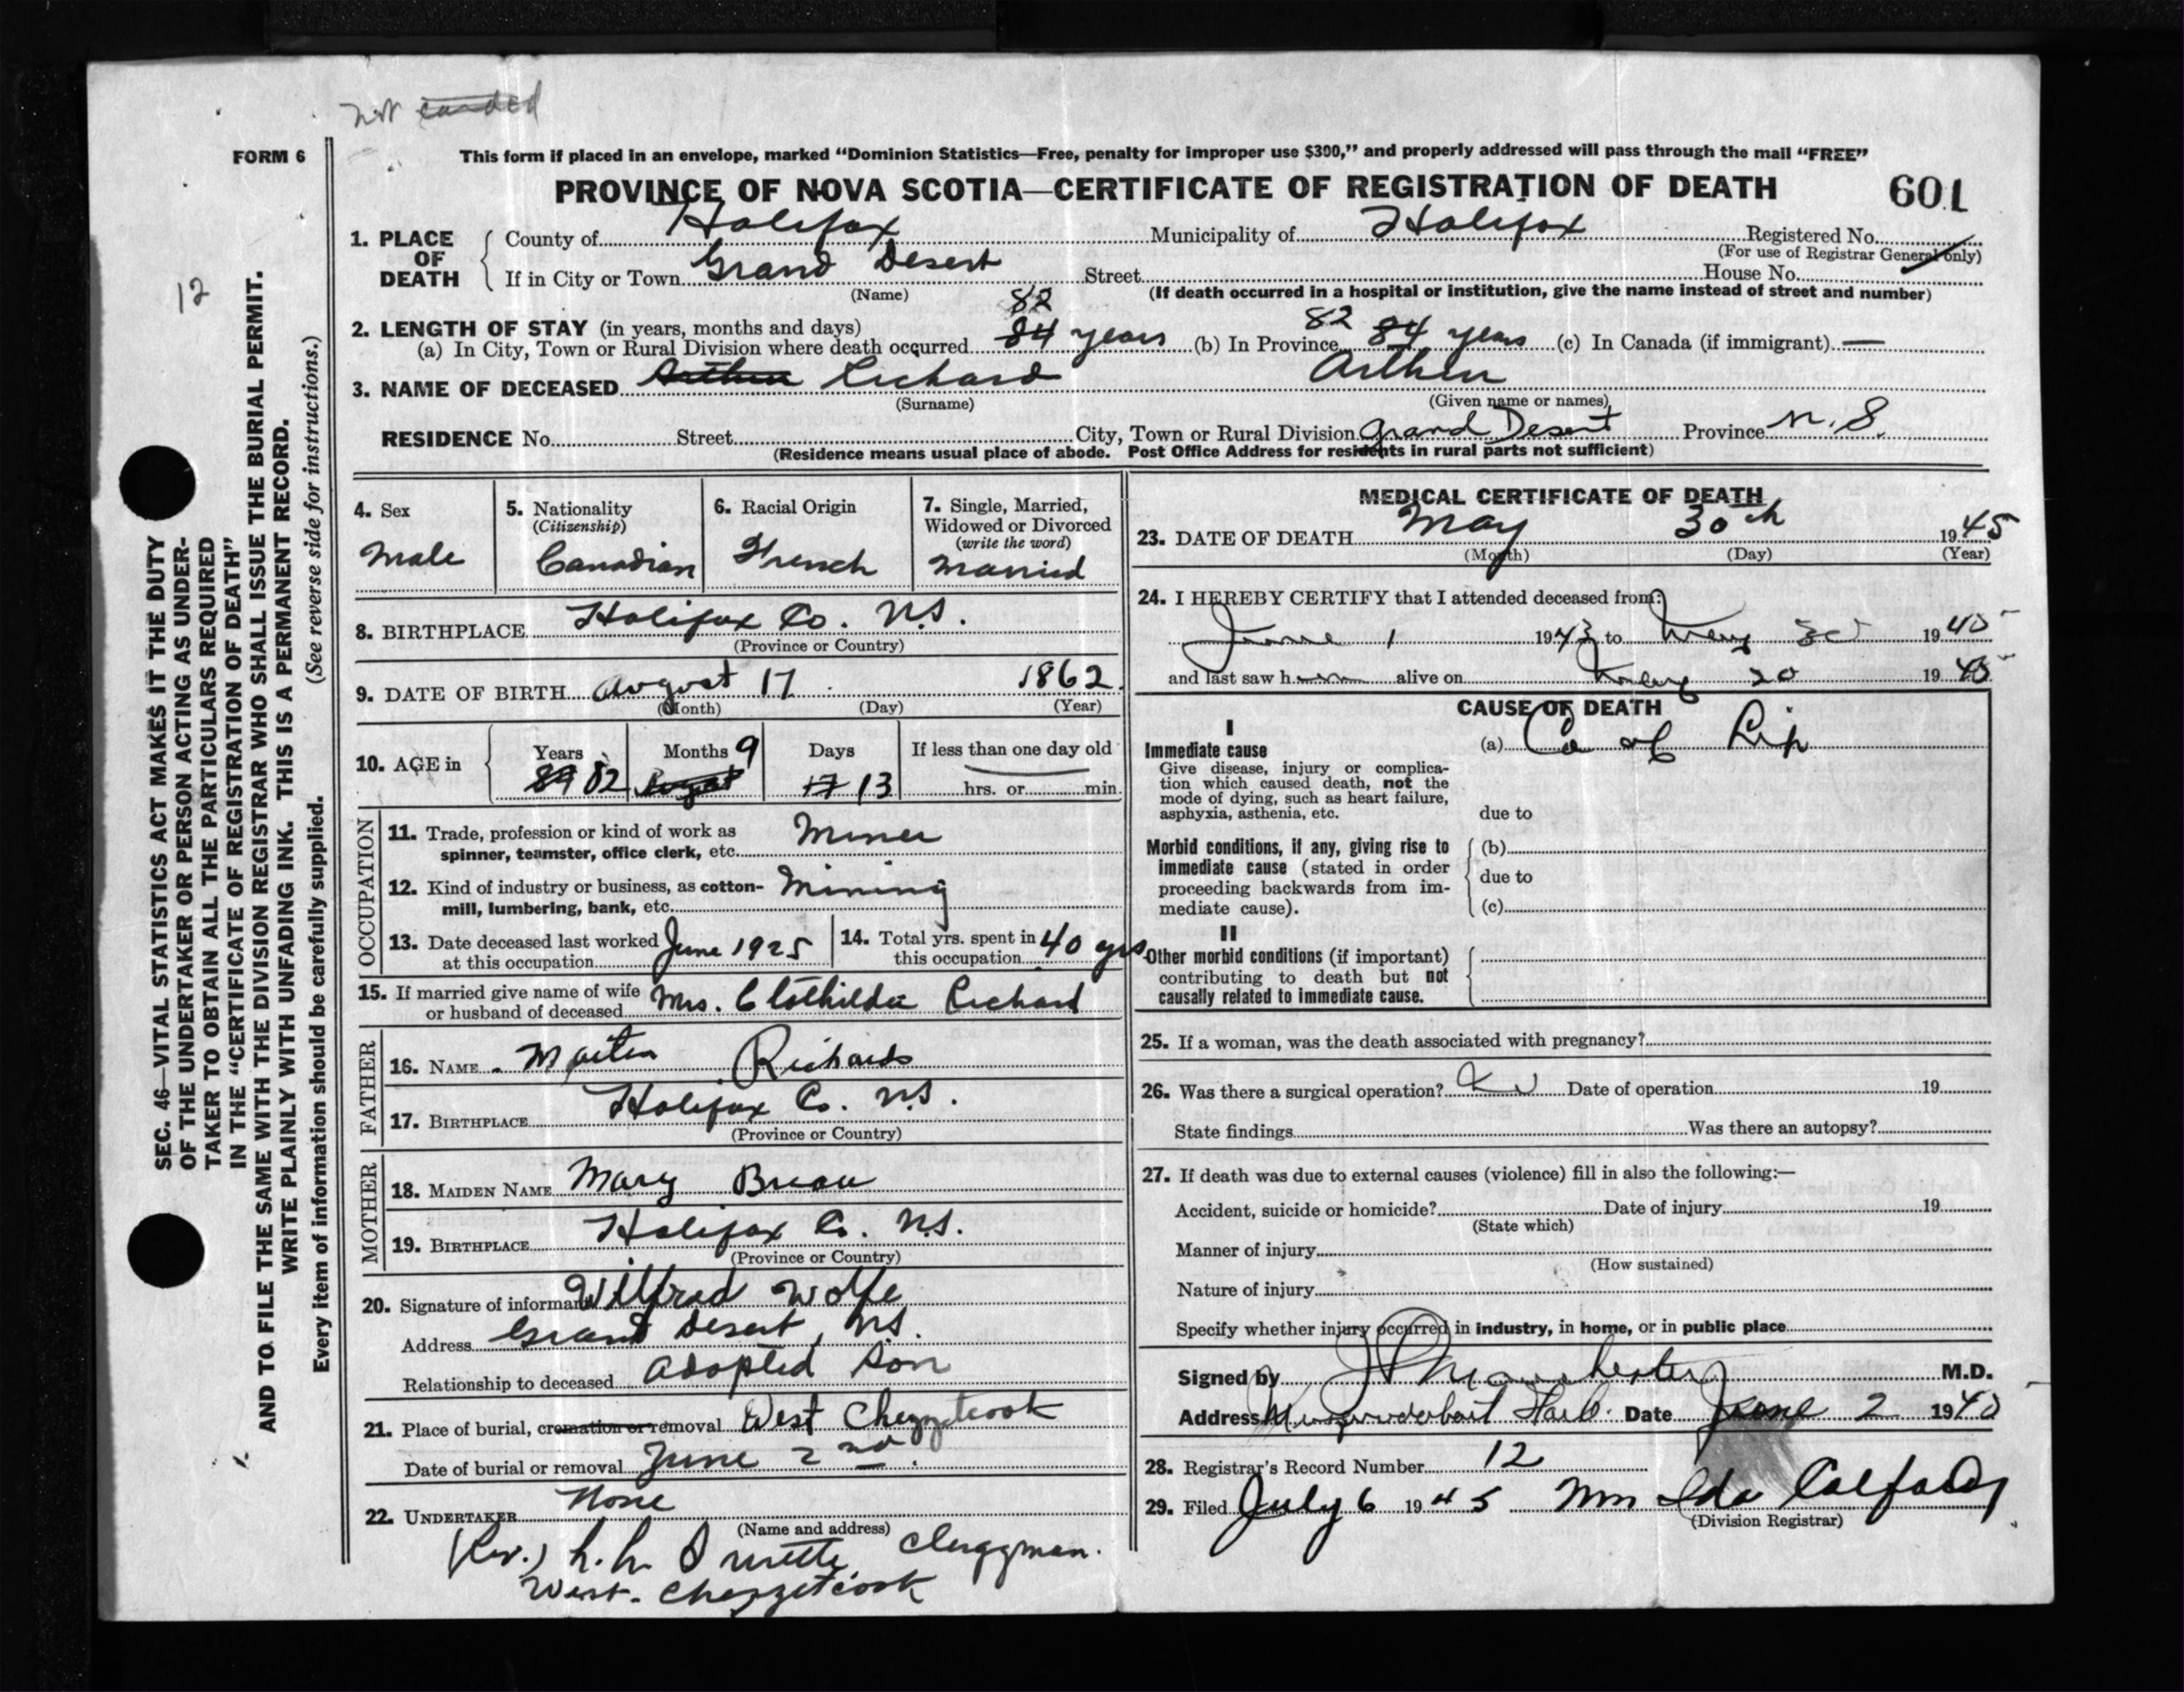 not carded
FORM 6
This form if placed in an envelope, marked “Dominion Statistics—Free, penalty for improper use $300,” and properly addressed will pass through the mail “FREE”
PROVINCE OF NOVA SCOTIA—CERTIFICATE OF REGISTRATION OF DEATH 601
1. PLACE OF DEATH County of Halifax Municipality of Halifax Registered No.
(For use of Registrar General only)
If in City or Town Grand Desert Street House No.
(Name) (If death occurred in a hospital or institution, give the name instead of street and number)
2. LENGTH OF STAY (in years, months and days)
82 82
(a) In City, Town or Rural Division where death occurred 84 years (b) In Province 84 years (c) In Canada (if immigrant) —
3. NAME OF DECEASED Arthur Richard Arthur
(Surname) (Given name or names)
RESIDENCE No. Street City, Town or Rural Division Grand Desert Province N.S.
(Residence means usual place of abode. Post Office Address for residents in rural parts not sufficient)
4. Sex
Male
5. Nationality
(Citizenship)
Canadian
6. Racial Origin
French
7. Single, Married,
Widowed or Divorced
(write the word)
Married
8. BIRTHPLACE Halifax Co. N.S.
(Province or Country)
9. DATE OF BIRTH August 17 1862
(Month) (Day) (Year)
10. AGE in Years Months 9 Days If less than one day old
82 August 17 13 hrs. or min.
OCCUPATION
11. Trade, profession or kind of work as
spinner, teamster, office clerk, etc. Miner
12. Kind of industry or business, as cotton-
mill, lumbering, bank, etc. Mining
13. Date deceased last worked
at this occupation June 1925
14. Total yrs. spent in
this occupation 40 yrs
15. If married give name of wife
or husband of deceased Mrs. Clothilda Richard
FATHER
16. NAME Martin Richards
17. BIRTHPLACE Halifax Co. N.S.
(Province or Country)
MOTHER
18. MAIDEN NAME Mary Breau
19. BIRTHPLACE Halifax Co. N.S.
(Province or Country)
20. Signature of informant Wilfred Wolfe
Address Grand Desert, N.S.
Relationship to deceased Adopted Son
21. Place of burial, cremation or removal West Chezzetcook
Date of burial or removal June 2nd.
22. UNDERTAKER None
(Name and address)
(Rev.) Clergyman.
West. Chezzetcook
MEDICAL CERTIFICATE OF DEATH
23. DATE OF DEATH May 30th 1945
(Month) (Day) (Year)
24. I HEREBY CERTIFY that I attended deceased from:
June 1 1943 to May 30 1945
and last saw him alive on May 20 1945
CAUSE OF DEATH
I
Immediate cause
Give disease, injury or complica-
tion which caused death, not the
mode of dying, such as heart failure,
asphyxia, asthenia, etc.
(a) Ca of Lip
due to
Morbid conditions, if any, giving rise to
immediate cause (stated in order
proceeding backwards from im-
mediate cause).
(b)
due to
(c)
II
Other morbid conditions (if important)
contributing to death but not
causally related to immediate cause.
25. If a woman, was the death associated with pregnancy?
26. Was there a surgical operation? Date of operation 19
State findings Was there an autopsy?
27. If death was due to external causes (violence) fill in also the following:—
Accident, suicide or homicide? Date of injury 19
(State which)
Manner of injury
(How sustained)
Nature of injury
Specify whether injury occurred in industry, in home, or in public place
Signed by Manchester M.D.
Address Musquodoboit Harb. Date June 2 1945
28. Registrar’s Record Number 12
29. Filed July 6 1945 Mrs Ida
(Division Registrar)
12
SEC. 46—VITAL STATISTICS ACT MAKES IT THE DUTY
OF THE UNDERTAKER OR PERSON ACTING AS UNDER-
TAKER TO OBTAIN ALL THE PARTICULARS REQUIRED
IN THE “CERTIFICATE OF REGISTRATION OF DEATH”
AND TO FILE THE SAME WITH THE DIVISION REGISTRAR WHO SHALL ISSUE THE BURIAL PERMIT.
WRITE PLAINLY WITH UNFADING INK. THIS IS A PERMANENT RECORD.
Every item of information should be carefully supplied. (See reverse side for instructions.)